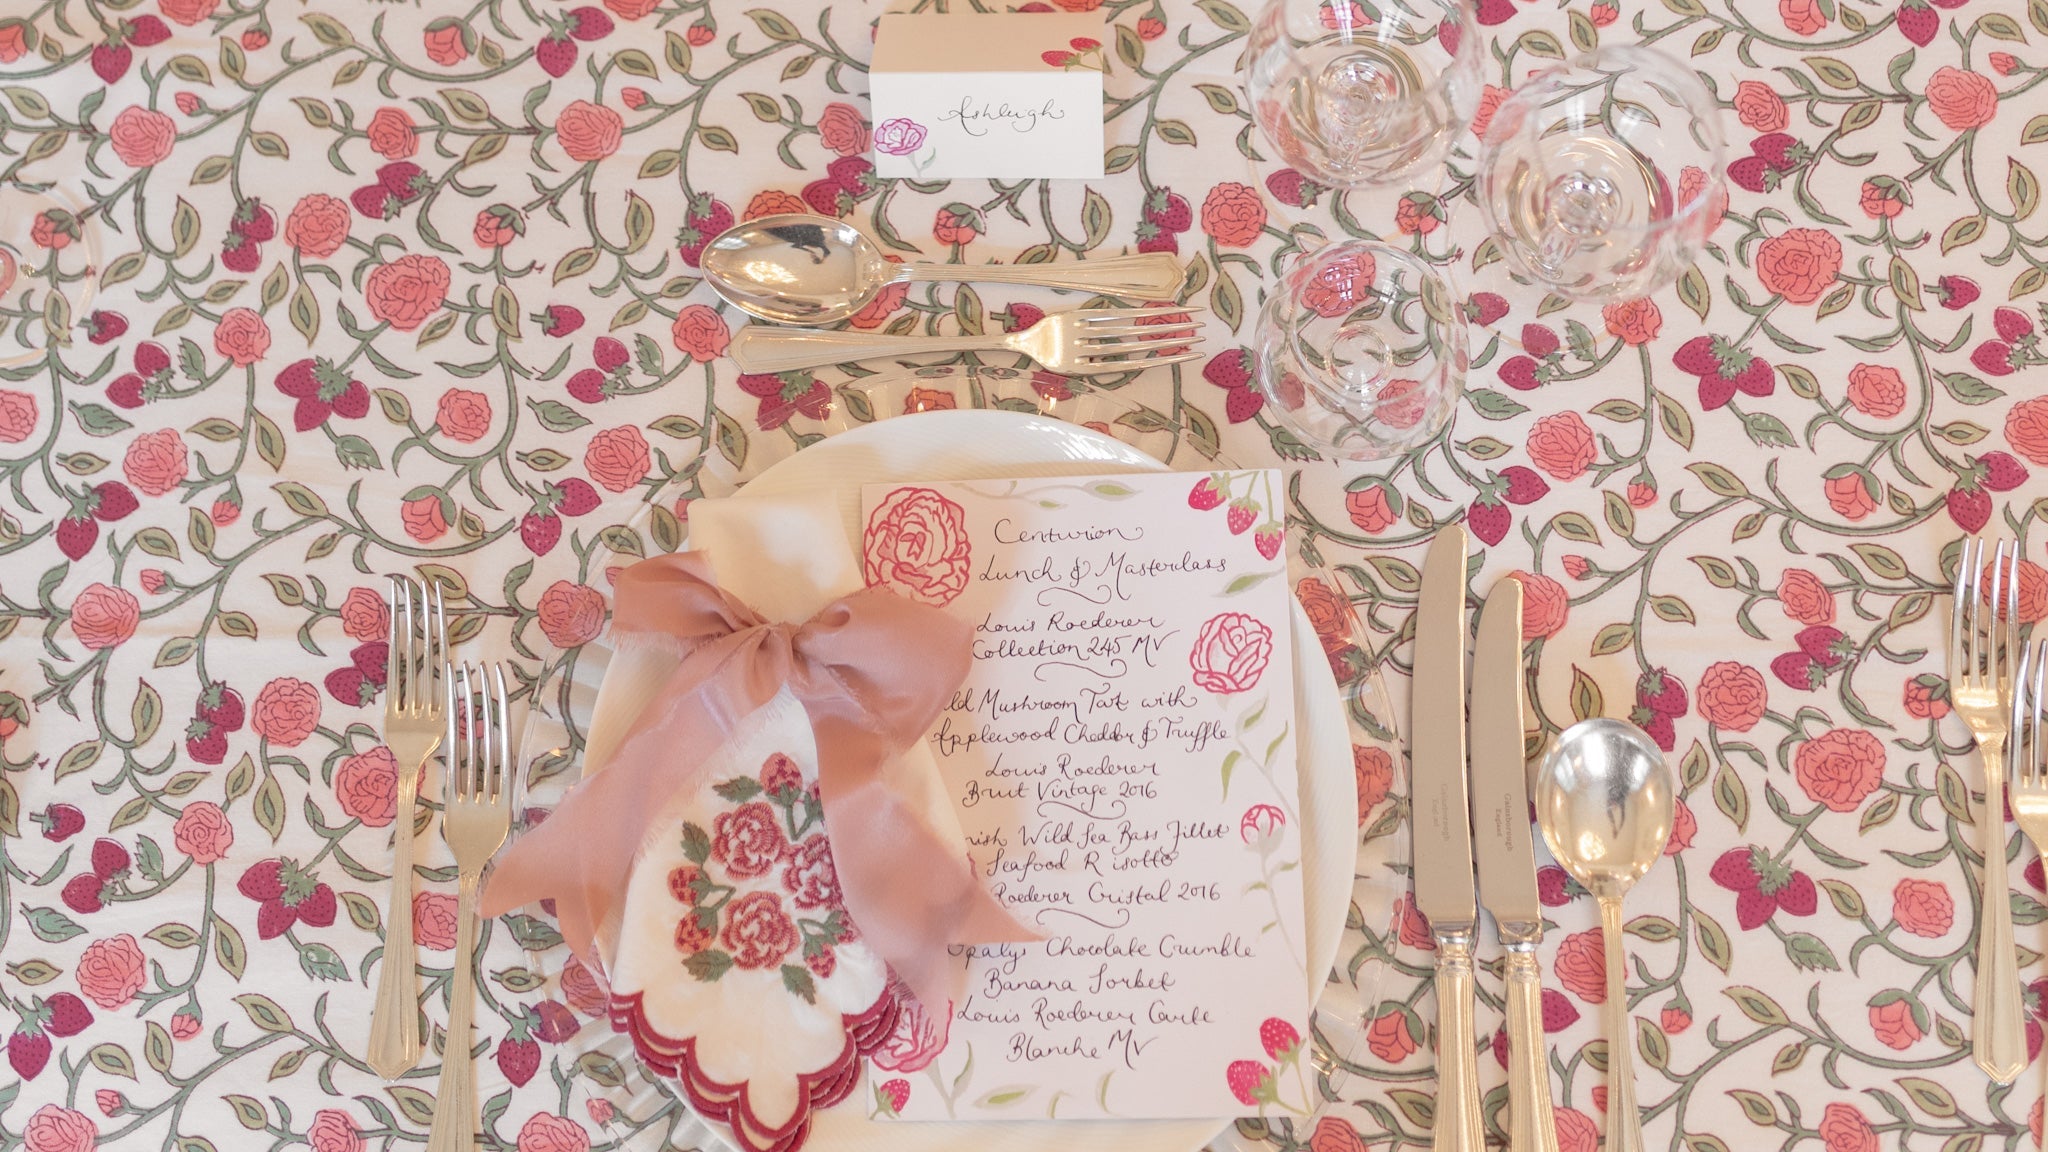 Ashleigh
Centurion
Lunch & Masterclass
Louis Roederer
Collection 245 MV
ld Mushroom Tart with
Applewood Cheddar & Truffle
Louis Roederer
Brut Vintage 2016
nish Wild Sea Bass Fillet
Seafood Risotto
Roederer Cristal 2016
Opalys Chocolate Crumble
Banana Sorbet
Louis Roederer Carte
Blanche MV
Gainsborough
England
Gainsborough
England